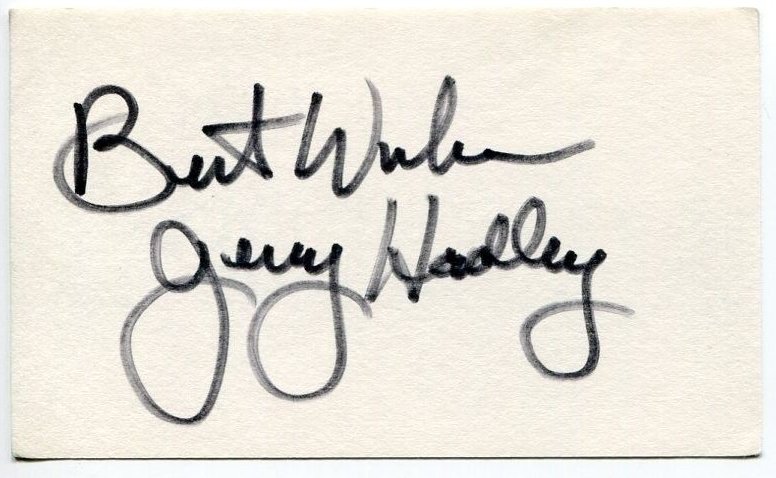 Best Wishes
Jerry Hadley